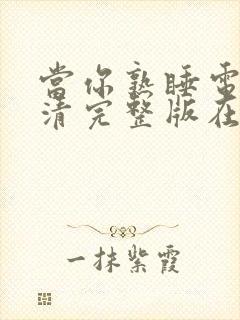 當你熟睡電
清完整版在
一抹紫霞